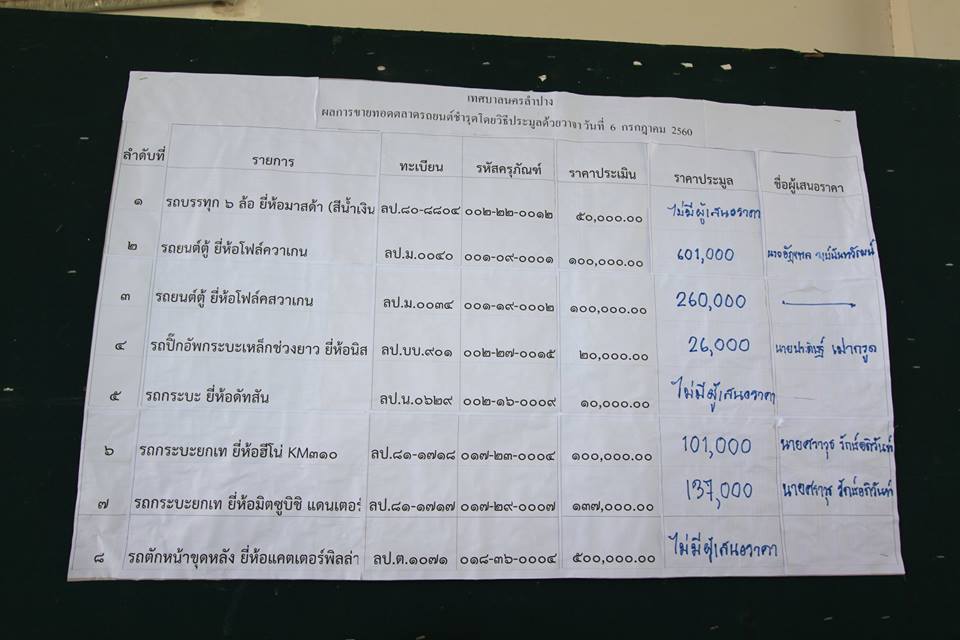 เทศบาลนครลำปาง
ผลการขายทอดตลาดรถยนต์ชำรุดโดยวิธีประมูลด้วยวาจา วันที่ 6 กรกฎาคม 2560
ลำดับที่ รายการ ทะเบียน รหัสครุภัณฑ์ ราคาประเมิน ราคาประมูล ชื่อผู้เสนอราคา
๑ รถบรรทุก ๖ ล้อ ยี่ห้อมาสด้า (สีน้ำเงิน ลป.๘๐-๘๘๐๔ ๐๐๒-๒๒-๐๐๑๒ ๕๐,๐๐๐.๐๐ ไม่มีผู้เสนอราคา
๒ รถยนต์ตู้ ยี่ห้อโฟล์ควาเกน ลป.ม.๐๐๔๐ ๐๐๑-๐๙-๐๐๐๑ ๑๐๐,๐๐๐.๐๐ 601,000
๓ รถยนต์ตู้ ยี่ห้อโฟล์คสวาเกน ลป.ม.๐๐๓๔ ๐๐๑-๑๙-๐๐๐๒ ๑๐๐,๐๐๐.๐๐ 260,000
๔ รถปิ๊กอัพกระบะเหล็กช่วงยาว ยี่ห้อนิส ลป.บบ.๙๐๑ ๐๐๒-๒๗-๐๐๑๕ ๒๐,๐๐๐.๐๐ 26,000
๕ รถกระบะ ยี่ห้อดัทสัน ลป.น.๐๖๒๙ ๐๐๒-๑๖-๐๐๐๙ ๑๐,๐๐๐.๐๐ ไม่มีผู้เสนอราคา
๖ รถกระบะยกเท ยี่ห้อฮีโน่ KM๓๑๐ ลป.๘๑-๑๗๑๘ ๐๑๗-๒๓-๐๐๐๔ ๑๐๐,๐๐๐.๐๐ 101,000
๗ รถกระบะยกเท ยี่ห้อมิตซูบิชิ แดนเตอร์ ลป.๘๑-๑๗๑๗ ๐๑๗-๒๙-๐๐๐๗ ๑๓๗,๐๐๐.๐๐ 137,000
๘ รถตักหน้าขุดหลัง ยี่ห้อแคตเตอร์พิลล่า ลป.ต.๑๐๗๑ ๐๑๘-๓๖-๐๐๐๔ ๕๐๐,๐๐๐.๐๐ ไม่มีผู้เสนอราคา